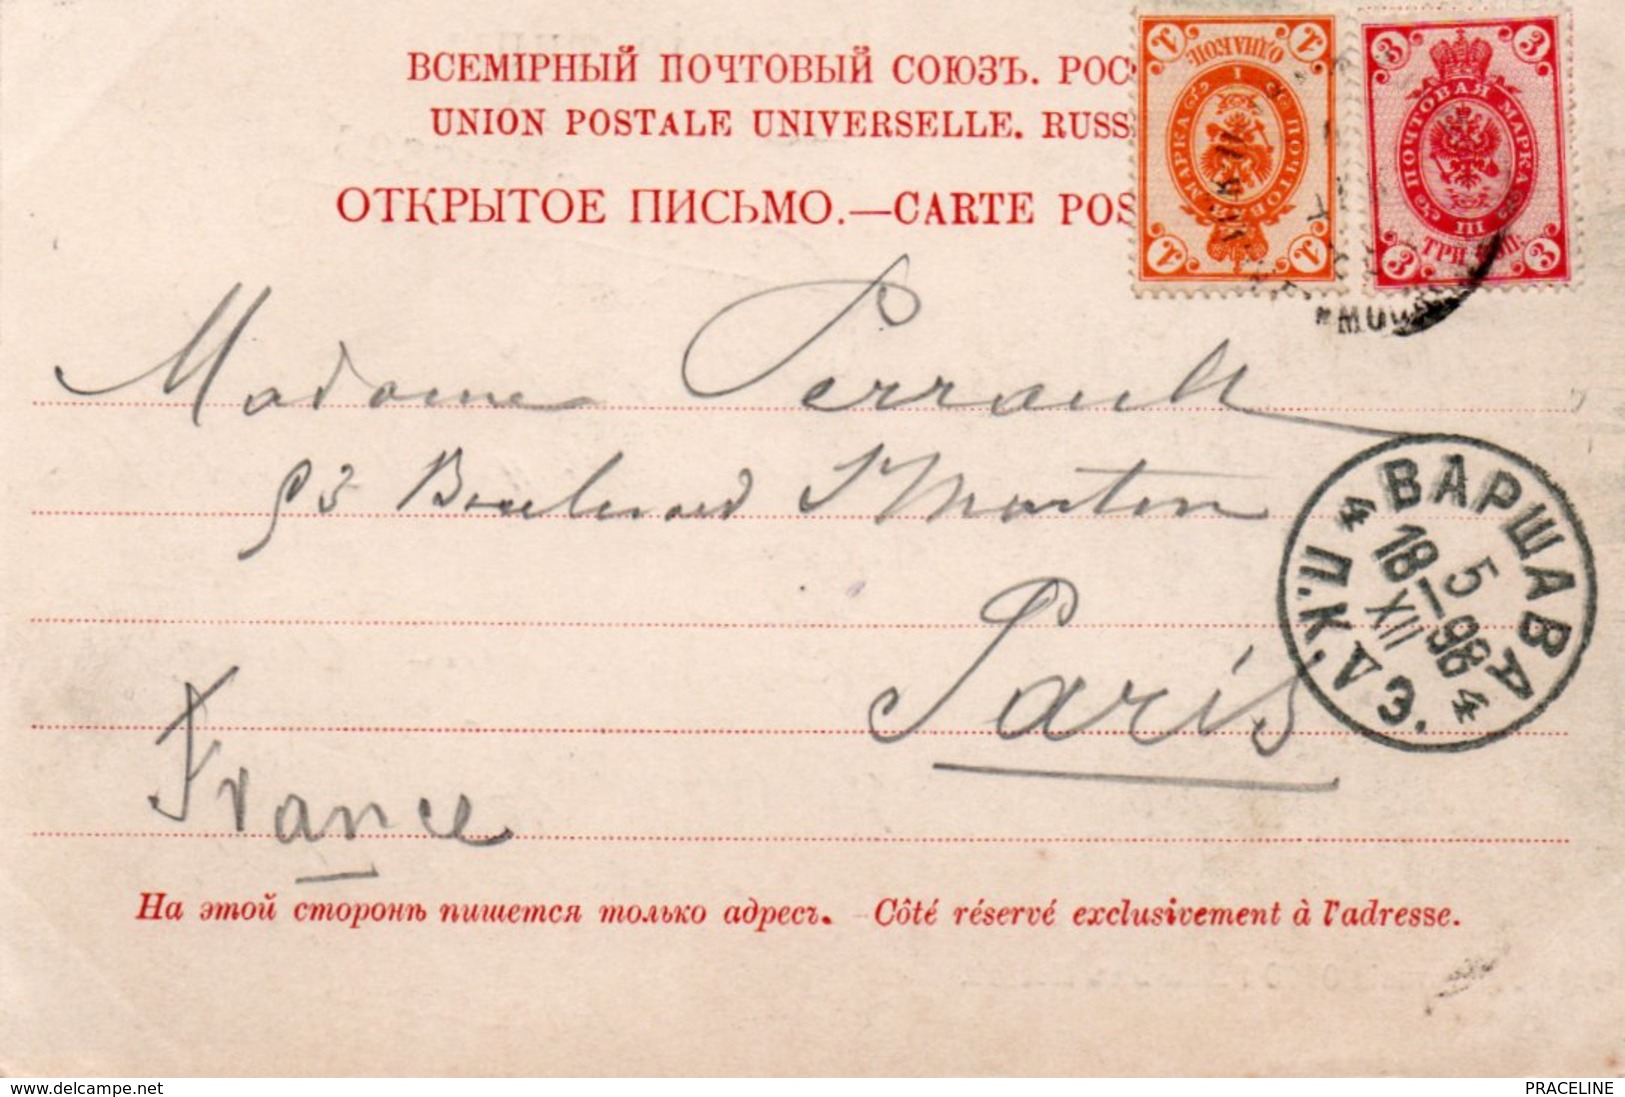 ВСЕМІРНЫЙ ПОЧТОВЫЙ СОЮЗЪ. РОС
UNION POSTALE UNIVERSELLE. RUSS
ОТКРЫТОЕ ПИСЬМО.—CARTE POS
1 ОДНАКОП. 1
ПОЧТОВ. МАРКА
I
1 1
3 3
ПОЧТОВАЯ МАРКА
III
3 ТРИ КОП. 3
МОСК
Madame Perrault
93 Boulevard St Martin
Paris
France
ВАРШАВА
5
18-98
XII
4 4
П.К.
Э.
На этой сторонѣ пишется только адресъ. - Côté réservé exclusivement à l'adresse.
www.delcampe.net
PRACELINE